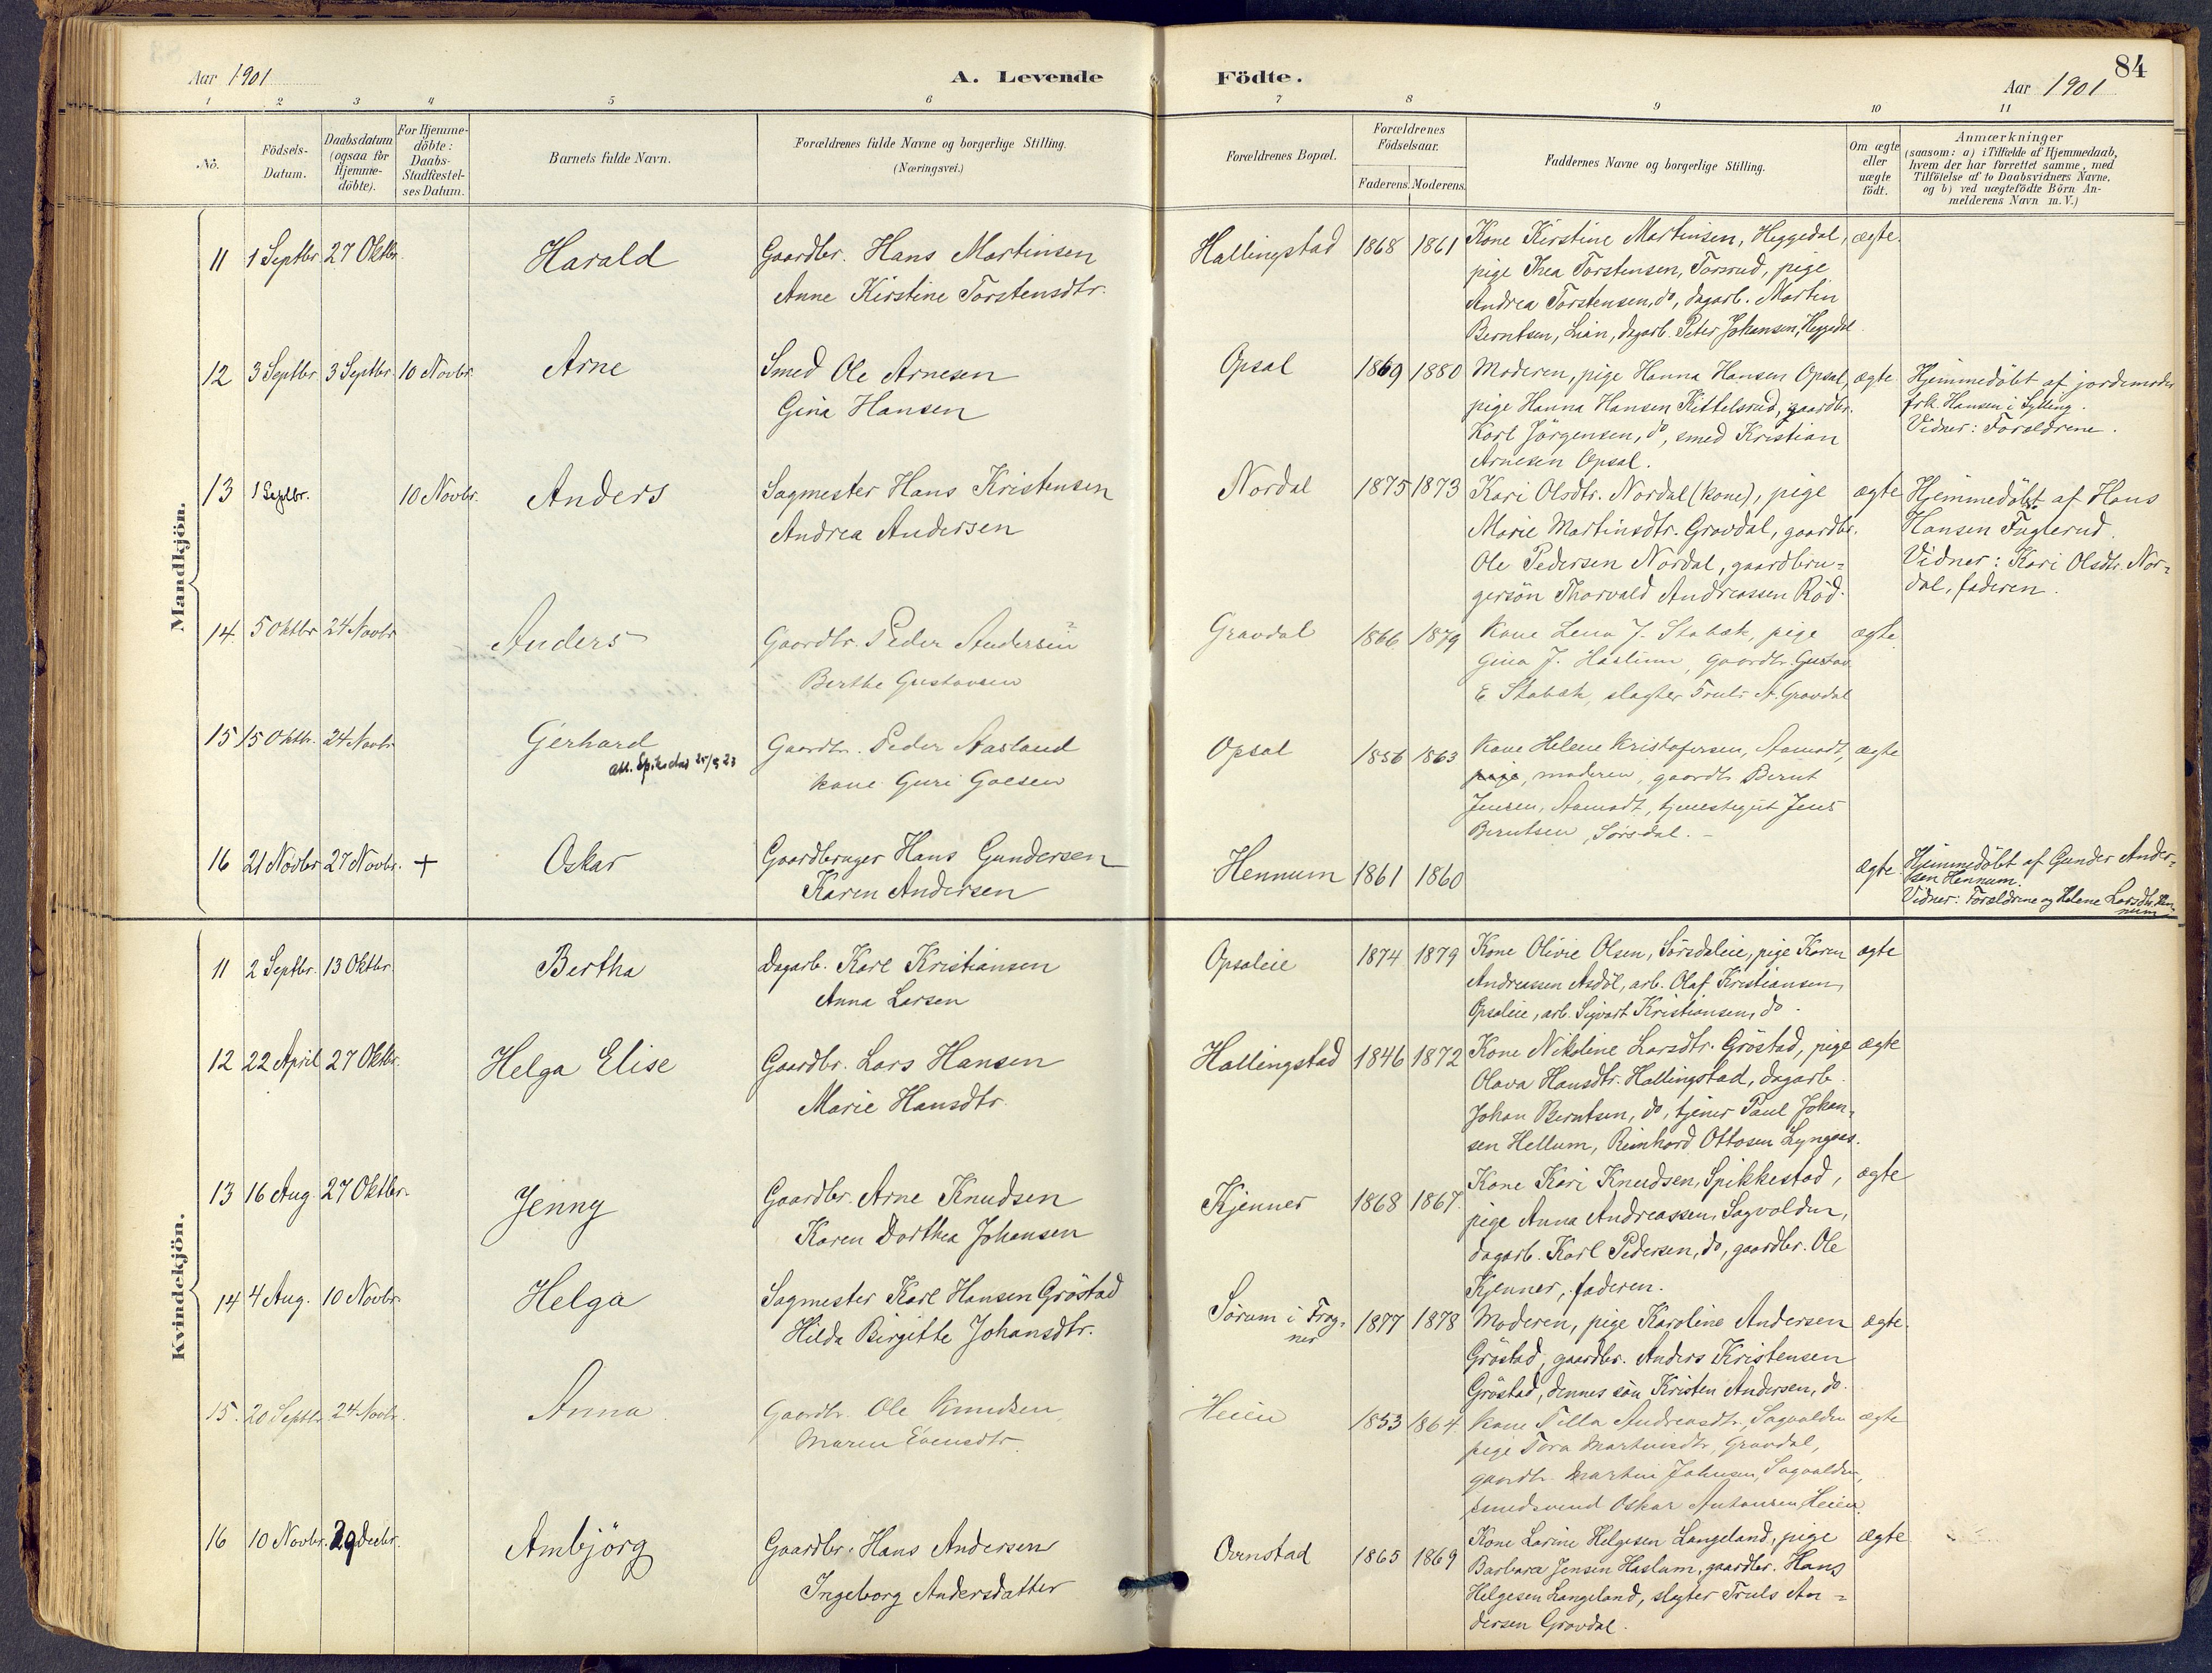 84
Aar 1901
A. Levende Födte.
Aar 1901
1 2 3 4 5 6 7 8 9 10 11
No.
Födsels-Datum.
Daabsdatum (ogsaa for Hjemme-döbte).
For Hjemme-döbte: Daabs-Stadfæstel-ses Datum.
Barnets fulde Navn.
Forældrenes fulde Navne og borgerlige Stilling.
(Næringsvei.)
Forældrenes Bopæl.
Forældrenes Födselsaar.
Faderens. Moderens.
Faddernes Navne og borgerlige Stilling.
Om ægte eller uægte födt.
Anmærkninger
(saasom: a) i Tilfælde af Hjemmedaab,
hvem der har forrettet samme, med
Tilföielse af to Daabsvidners Navne.
og b) ved uægtefödte Börn An-
melderens Navn m. V.)
Mandkjön.
11 1 Septbr. 27 Oktbr. Harald
Gaardbr. Hans Martinsen
Anne Kirstine Torstensdtr.
Hallingstad 1868 1861
Kone Kirstine Martinsen, Heggedal,
pige Thea Torstensen, Torsrud, pige
Andrea Torstensen, do, dagarb. Martin
Berntsen, Lian, dagarb. Peter Johansen, Heggedal.
ægte.
12 3 Septbr. 3 Septbr. 10 Novbr. Arne
Smed Ole Arnesen
Gina Hansen
Opsal 1869 1880
Moderen, pige Hanna Hansen Opsal,
pige Hanna Hansen Kittelsrud, gaardbr.
Karl Jörgensen, do, smed Kristian
Arnesen Opsal.
ægte.
Hjemmedöbt af jordemoder
frk. Hansen i Sylling.
Vidner: Forældrene.
13 1 Septbr. 10 Novbr. Anders
Sagmester Hans Kristensen
Andrea Andersen
Nordal 1875 1873
Kari Olsdtr. Nordal (kone), pige
Marie Martinsdtr. Gravdal, gaardbr.
Ole Pedersen Nordal, gaardbru-
gersön Thorvald Andreassen Röd.
ægte
Hjemmedöbt af Hans
Hansen Fuglerud.
Vidner: Kari Olsdtr. Nor-
dal, faderen.
14. 5 Oktbr 24 Novbr Anders
Gaardbr. Peder Andersen
Berthe Gustavsen
Gravdal 1866 1879
Kone Lena J. Stabæk, pige
Gina J. Haslum, Gaardbr. Gustav
E Stabæk, slagter Truls A. Gravdal
ægte.
15 15 Oktbr. 24 Novbr Gerhard
att. 25/9 23
Gaardbr. Peder Aasland
kone Guri Golsen
Opsal 1856 1863
Kone Helene Kristofersen, Aamodt,
pige, moderen, gaardbr. Bernt
Jensen, Aamodt, tjenestegut Jens
Berntsen, Sörsdal.
ægte
16 21 Novbr 27 Novbr. + Oskar
Gaardbruger Hans Gundersen
Karen Andersen
Hennum 1861 1860
ægte.
Hjemmedöbt af Gunder Ander-
sen Hennum.
Vidner: Forældrene og Helene Larsdtr. Hen-
num.
Kvindekjön.
11 2 Septbr. 13 Oktbr. Bertha
Dagarb. Karl Kristiansen
Anna Larsen
Opsaleie 1874 1879
Kone Olivie Olsen, Sörsdaleie, pige Karen
Andreassen Asdöl, arb. Olaf Kristiansen,
Opsaleie, arb. Sigvart Kristiansen, do.
ægte
12 22 April 27 Oktbr. Helga Elise
Gaardbr. Lars Hansen
Marie Hansdtr.
Hallingstad 1846 1872
Kone Nikoline Larsdtr. Gröstad, pige
Olava Hansdtr. Hallingstad, dagarb.
Johan Berntsen, do, tjener Paul Johan-
sen Hellum, Reinhard Ottosen Lyngaas.
ægte
13 16 Aug. 27 Oktbr. Jenny
Gaardbr. Arne Knudsen
Karen Dorthea Johansen
Kjenner 1868 1867.
Kone Kari Knudsen, Spikkestad,
pige Anna Andreassen, Sagvolden,
dagarb. Karl Pedersen, do, gaardbr. Ole
Kjenner, faderen.
ægte
14 4 Aug. 10 Novbr. Helga
Sagmester Karl Hansen Gröstad
Hilda Birgitte Johansdtr.
Sörum i Frog-
ner
1877 1878
Moderen, pige Karoline Andersen
Gröstad, gaardbr. Anders Kristensen
Gröstad, dennes sön Kristen Andersen, do.
ægte.
15. 20 Septbr. 24 Novbr. Anna
Gaardbr. Ole Knudsen,
Maren Evensdtr.
Heien 1853 1864
Kone Tilla Andreasdtr., Sagvolden
pige Tora Martinsdtr, Gravdal,
gaardbr. Martin Johnsen, Sagvolden,
smedsvend Oskar Antonsen Heien
ægte
16 10 Novbr. 29 Decbr. Ambjörg
Gaardbr. Hans Andersen
Ingeborg Andersdatter
Ovenstad 1865 1869
Kone Larine Helgesen Langeland, pige
Barbara Jensen Haslum, gaardbr. Hans
Helgesen Langeland, slagter Truls An-
dersen Gravdal.
ægte